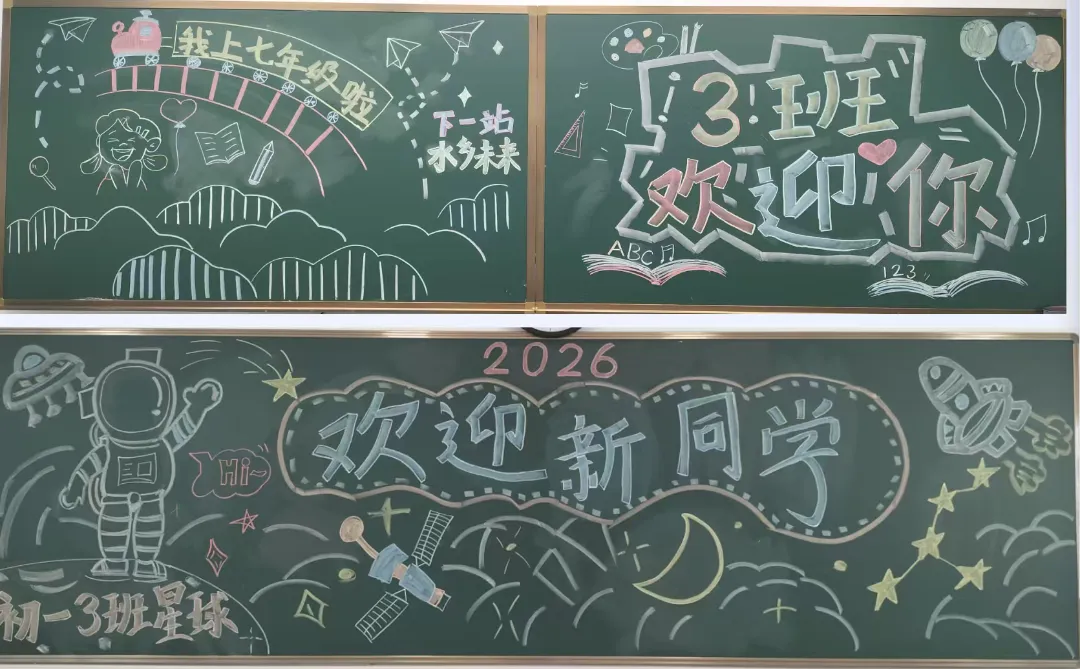 我上七年级啦
下一站
水乡未来
3班
欢迎你
ABC
123
2026
欢迎新同学
Hi~
初一3班星球